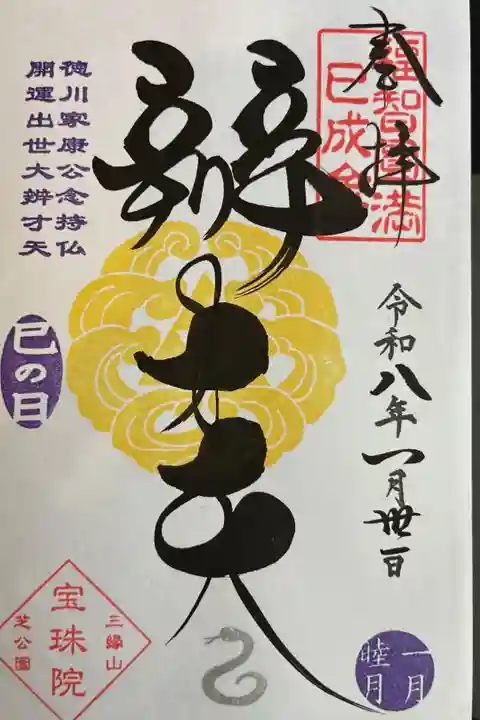 奉拝
智
満
巳成金
令和八年一月丗日
辨才天
徳川家康公念持仏
開運出世大辨才天
巳の日
三縁山
宝珠院
芝公園
一月
睦月